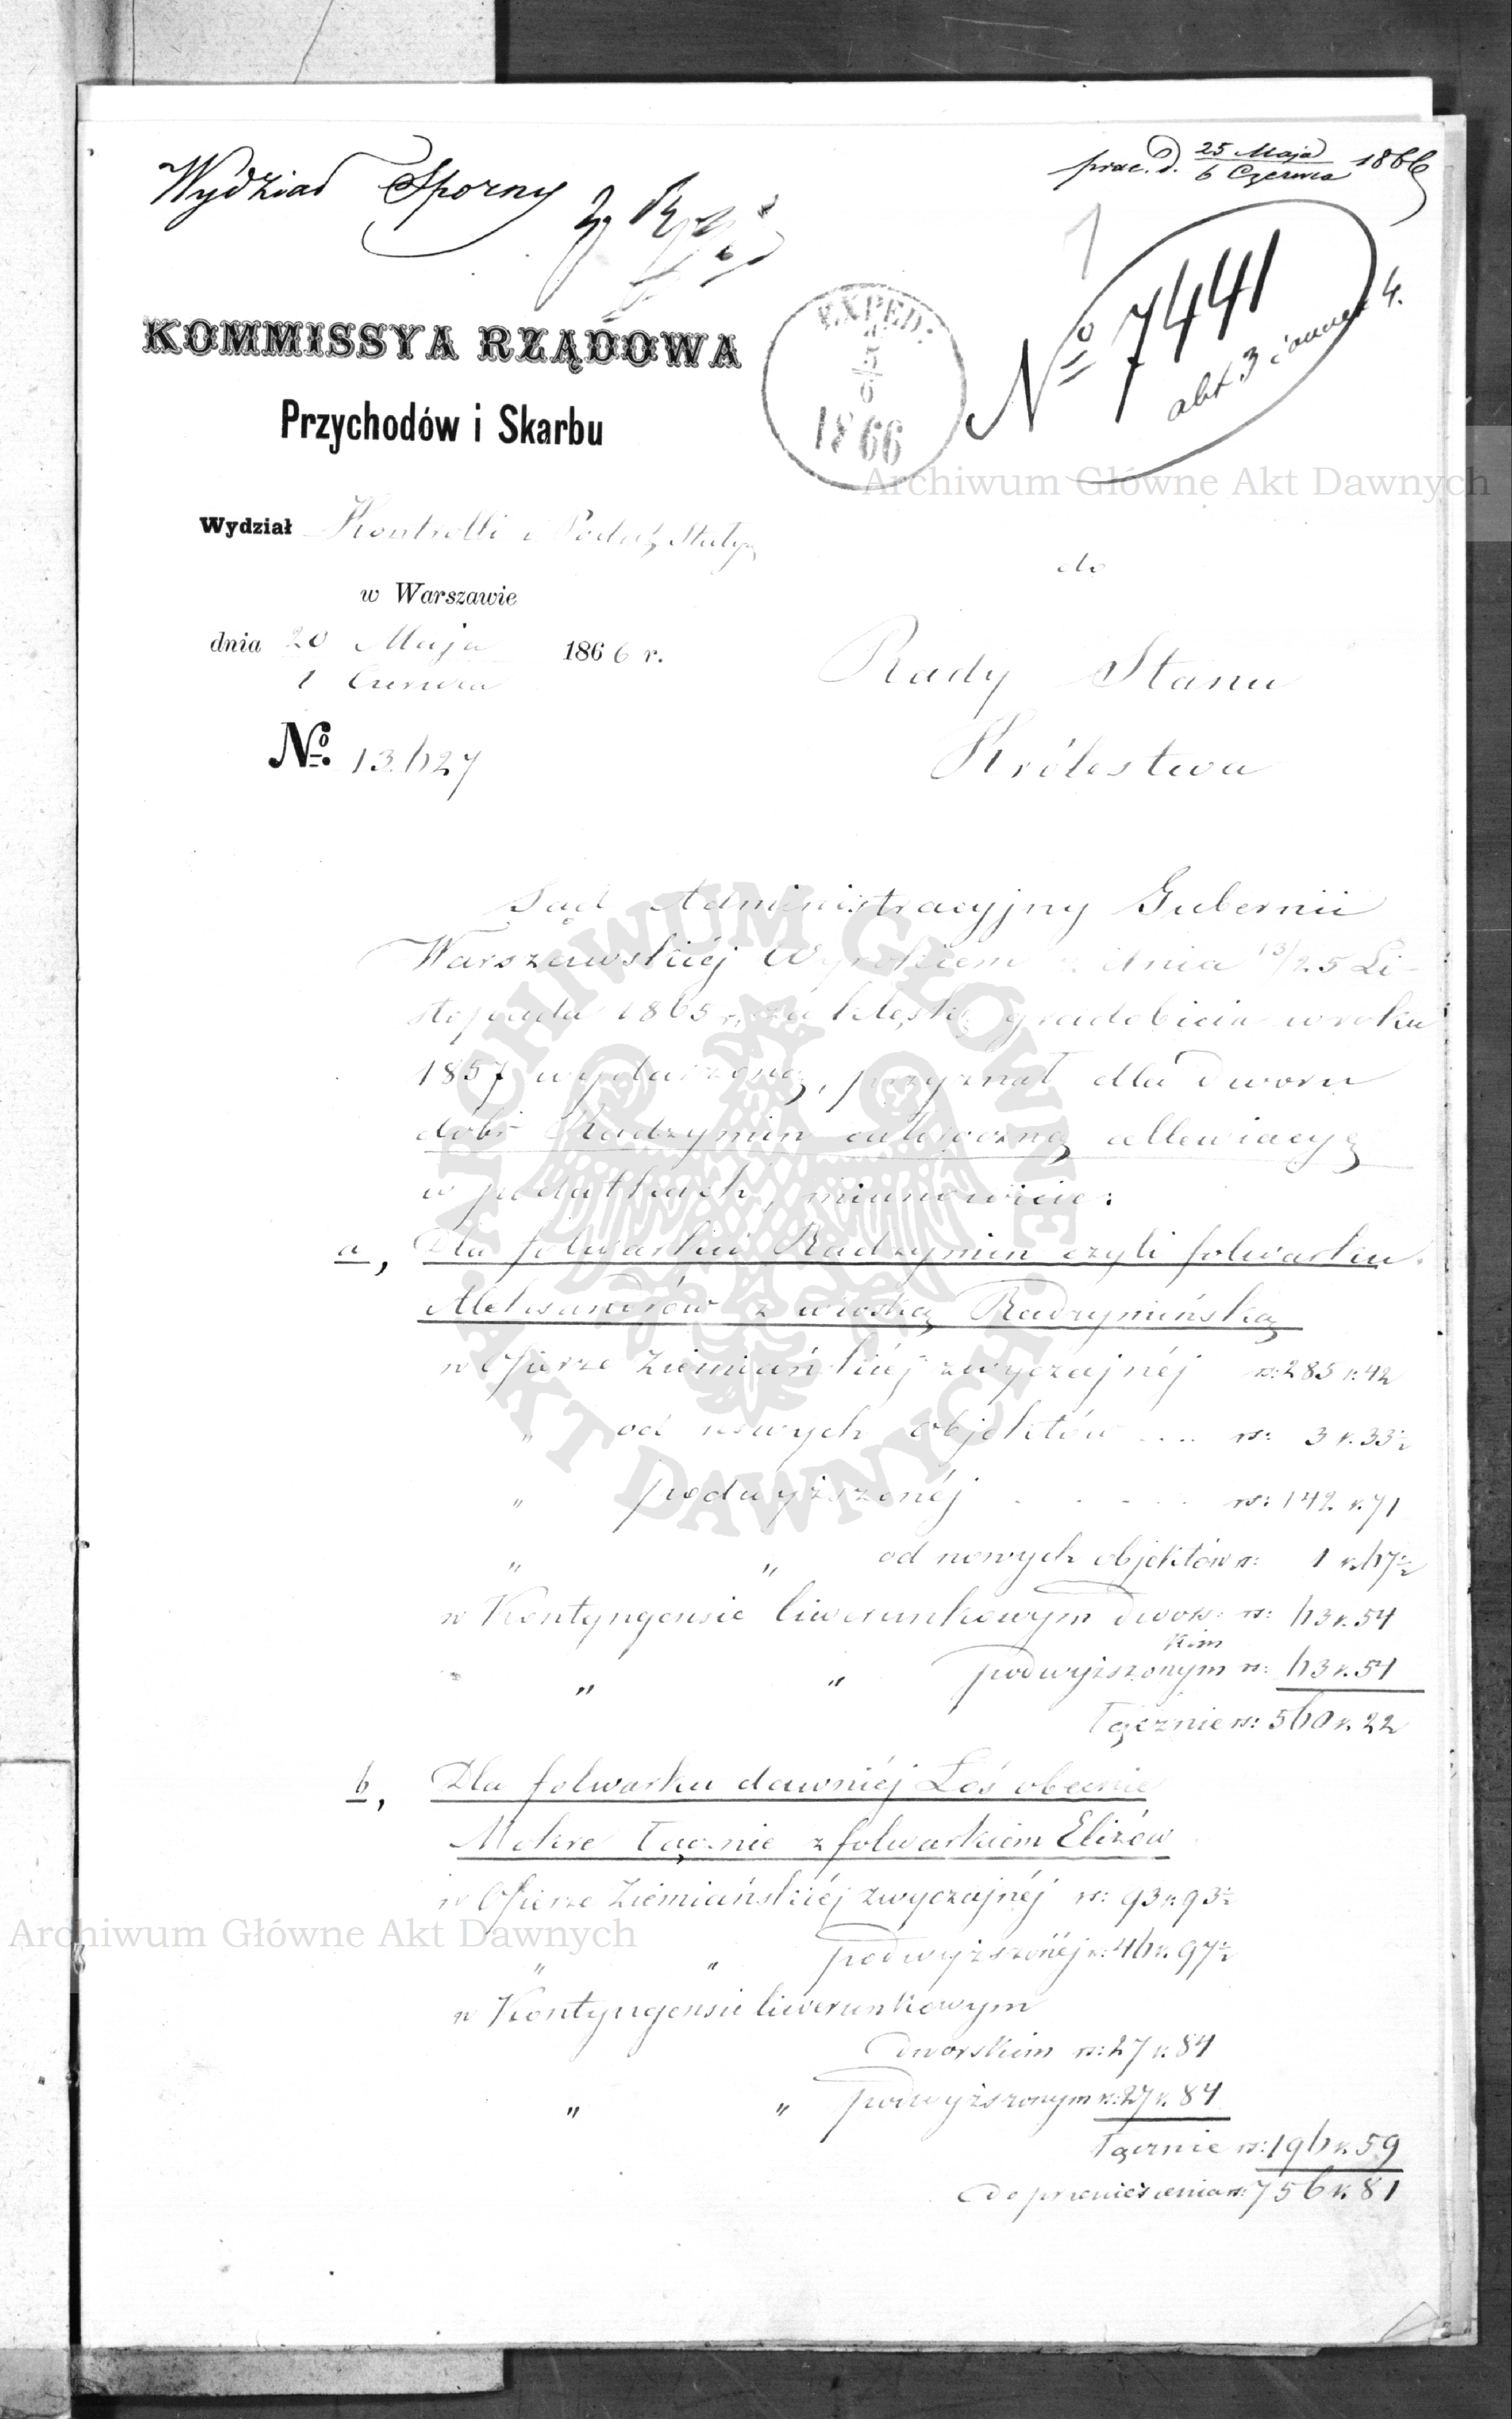 Wydział Sporny
prac. d. 25 Maja 1866
6 Czerwca
1
No 7441
KOMMISSYA RZĄDOWA
Przychodów i Skarbu
EXPED:
1866
Archiwum Główne Akt Dawnych
Wydział Kontrolli i Podat. Stałych
w Warszawie
dnia 20 Maja 1866 r.
1 Czerwca
No. 13.627
do
Rady Stanu
Królestwa
Sąd Administracyjny Gubernii
Warszawskiéj Wyrokiem z dnia 13/25 Li-
stopada 1865 r. za klęskę gradobicia w roku
1857 wydarzoną, przyznał dla Dworu
dobr Radzymin całoroczną allewiacyę
w podatkach, mianowicie:
a, Dla folwarku Radzymin czyli folwarku
Aleksandrów z wioską Radzymińską
w Ofierze Ziemiańskiéj zwyczajnéj rs: 285 k. 42
" od nowych objektów .... rs: 3 k. 33½
" podwyższonéj . . . . . rs: 142 k. 71
" " od nowych objektów rs: 1 k. 67½
w Kontyngensie liwerunkowym Dwors: rs: 63 k. 54
kim
" " podwyższonym rs: 63 k. 54
Łącznie rs: 560 k. 22
b, Dla folwarku dawniéj Łoś obecnie
Mokre łącznie z folwarkiem Elizów
w Ofierze Ziemiańskiéj zwyczajnéj rs: 93 k. 93½
" " podwyższonéj r: 46 k. 97½
w Kontyngensie liwerunkowym
Dworskim rs: 27 k. 84
" " podwyższonym rs: 27 k. 84
Łącznie rs: 196 k. 59
do przeniesienia rs: 756 k. 81
ARCHIWUM GŁÓWNE AKT DAWNYCH
Archiwum Główne Akt Dawnych